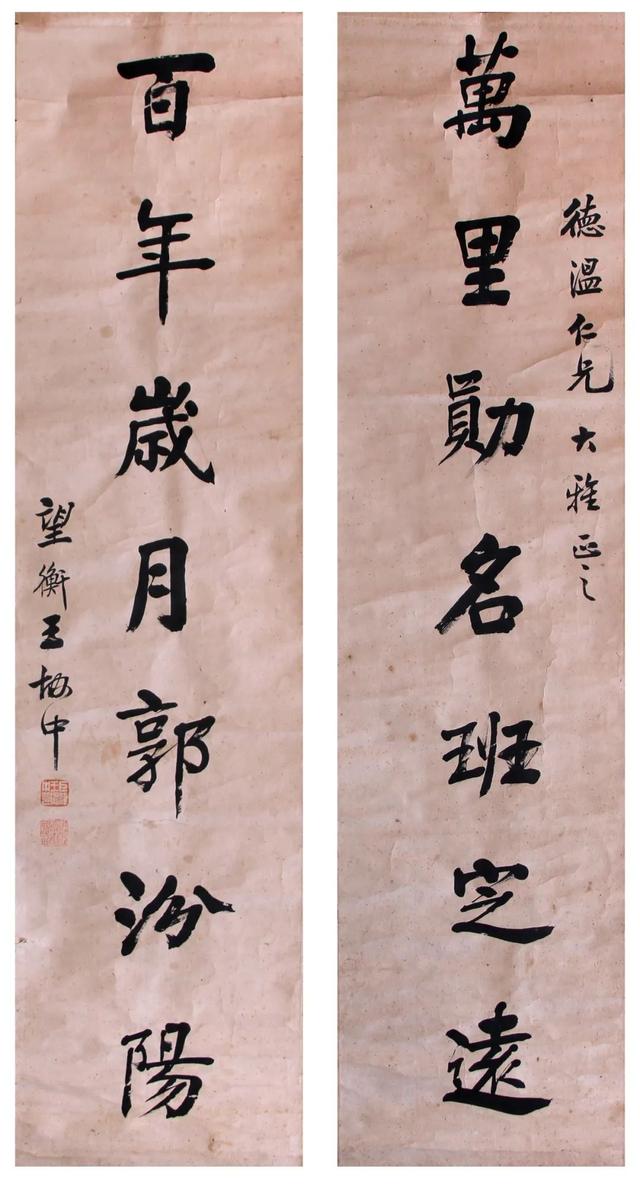 德溫仁兄大雅正之
萬里勛名班定遠
百年歲月郭汾陽
望衡王 中